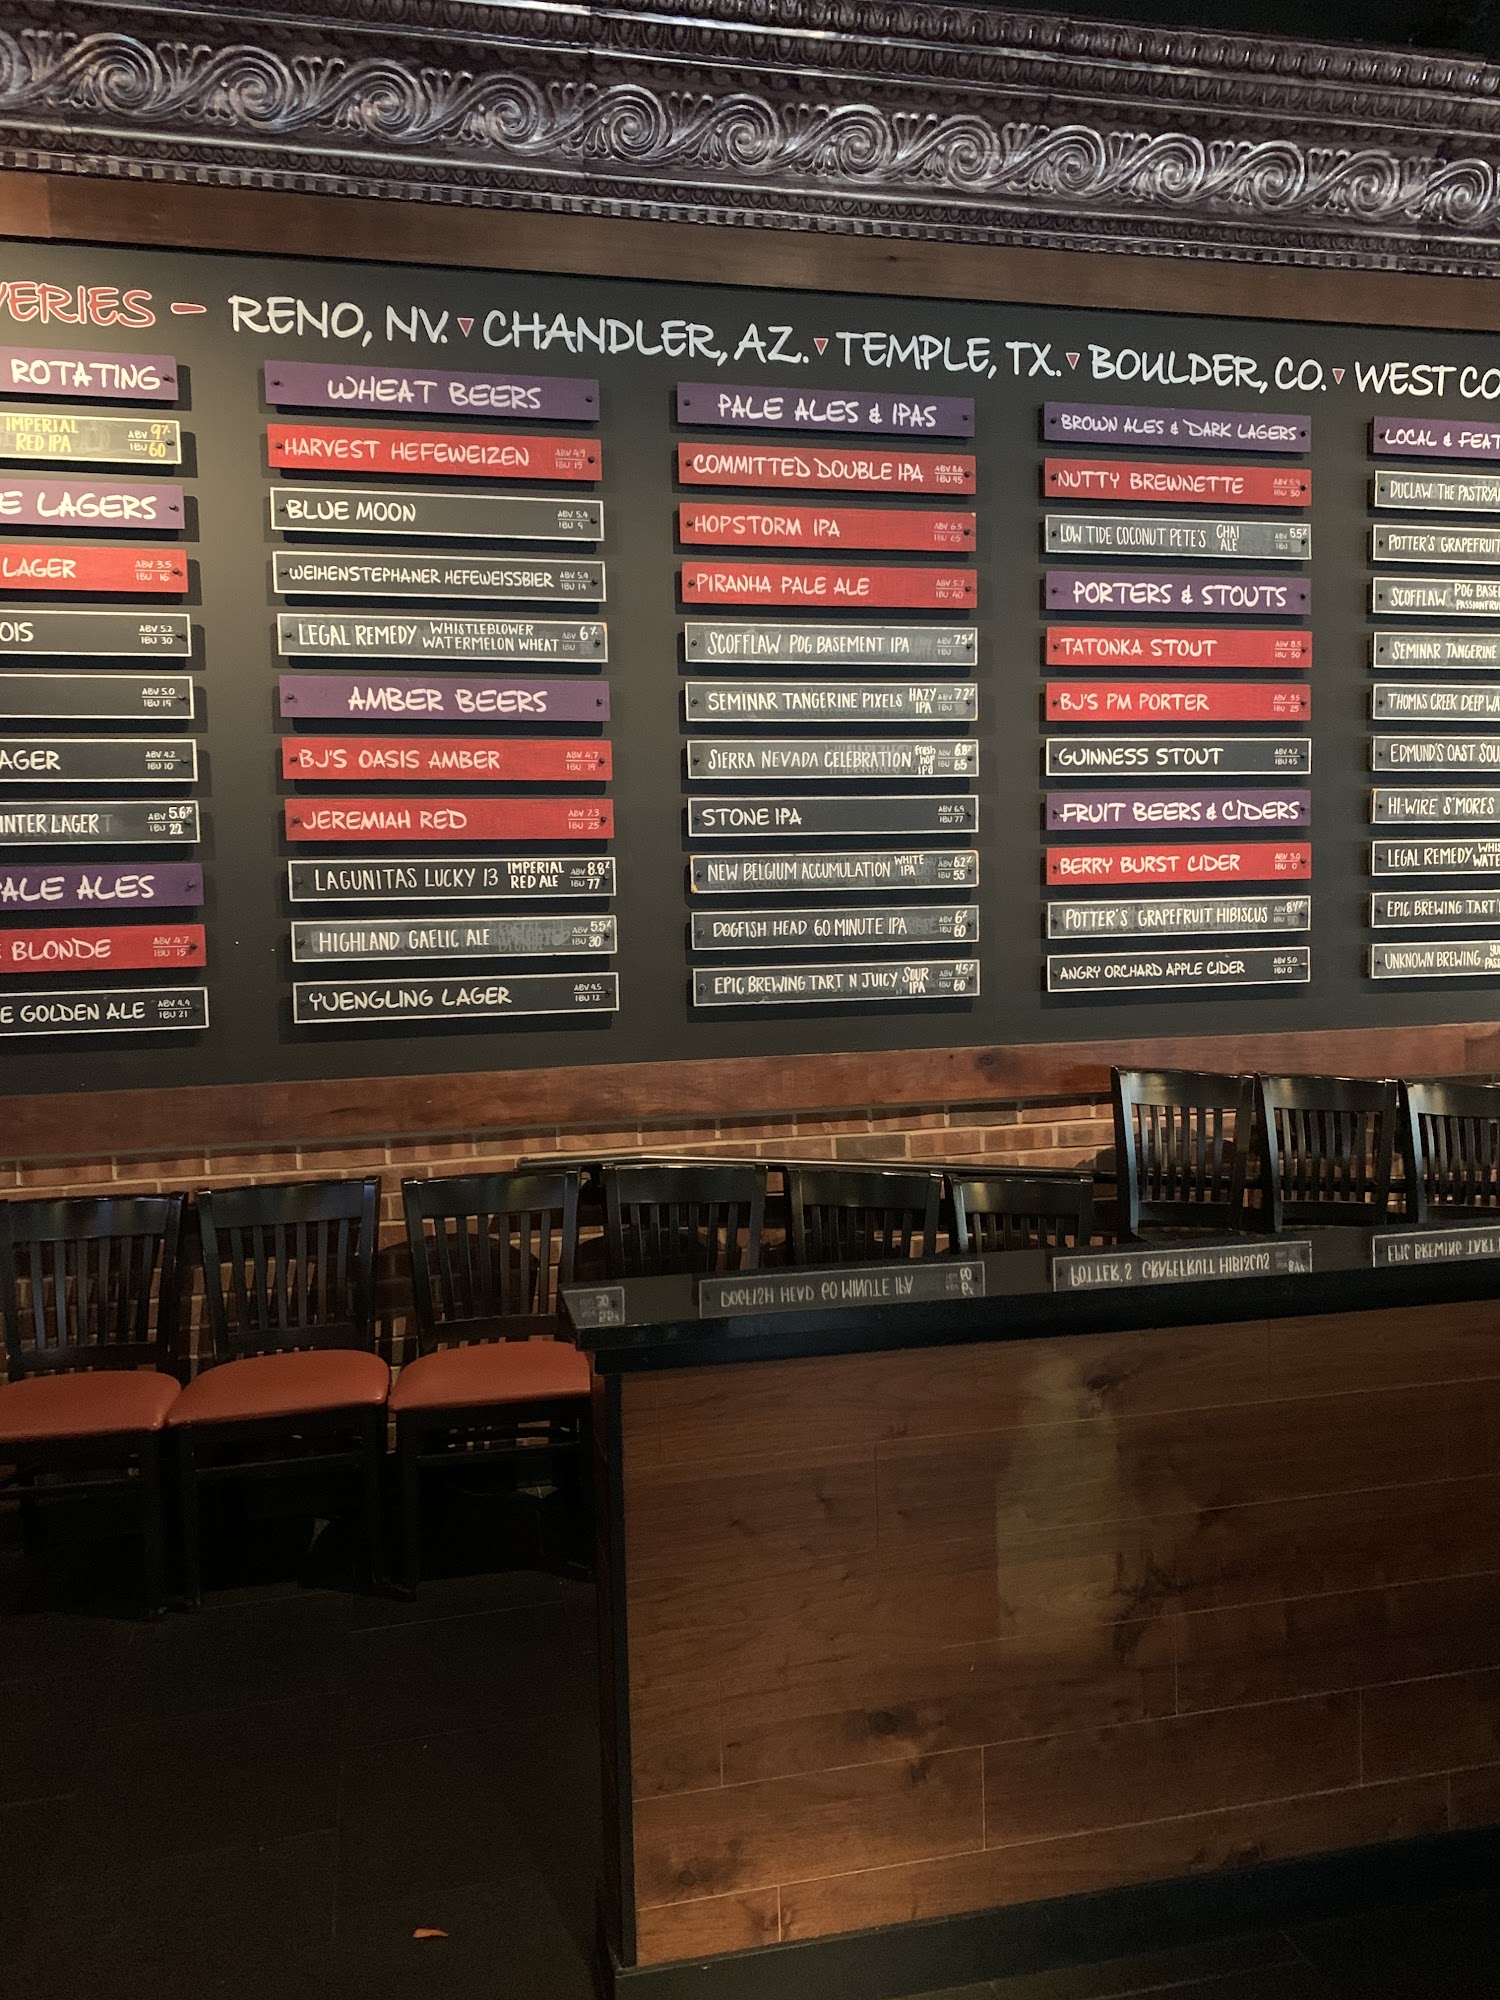 VERIES – RENO, NV. CHANDLER, AZ. TEMPLE, TX. BOULDER, CO. WEST CO
ROTATING
IMPERIAL
RED IPA ABV 9%
IBU 60
E LAGERS
LAGER ABV 3.5
IBU 16
OIS ABV 5.2
IBU 30
ABV 5.0
IBU 19
AGER ABV 4.2
IBU 10
INTER LAGER ABV 5.6%
IBU 22
PALE ALES
BLONDE ABV 4.7
IBU 15
E GOLDEN ALE ABV 4.4
IBU 21
WHEAT BEERS
HARVEST HEFEWEIZEN ABV 4.9
IBU 15
BLUE MOON ABV 5.4
IBU 9
WEIHENSTEPHANER HEFEWEISSBIER ABV 5.4
IBU 14
LEGAL REMEDY WHISTLEBLOWER
WATERMELON WHEAT ABV 6%
IBU
AMBER BEERS
BJ'S OASIS AMBER ABV 4.7
IBU 19
JEREMIAH RED ABV 7.3
IBU 25
LAGUNITAS LUCKY 13 IMPERIAL
RED ALE ABV 8.8%
IBU 77
HIGHLAND GAELIC ALE ABV 5.5%
IBU 30
YUENGLING LAGER ABV 4.5
IBU 12
PALE ALES & IPAS
COMMITTED DOUBLE IPA ABV 8.6
IBU 95
HOPSTORM IPA ABV 6.5
IBU 65
PIRANHA PALE ALE ABV 5.7
IBU 40
SCOFFLAW POG BASEMENT IPA ABV 7.5%
IBU
SEMINAR TANGERINE PIXELS HAZY
IPA ABV 7.2%
IBU
SIERRA NEVADA CELEBRATION fresh
hop
ipa ABV 6.8%
IBU 65
STONE IPA ABV 6.9
IBU 77
NEW BELGIUM ACCUMULATION WHITE
IPA ABV 6.2%
IBU 55
DOGFISH HEAD 60 MINUTE IPA ABV 6%
IBU 60
EPIC BREWING TART N JUICY SOUR
IPA ABV 4.5%
IBU 60
BROWN ALES & DARK LAGERS
NUTTY BREWNETTE ABV 5.9
IBU 30
LOW TIDE COCONUT PETE'S CHAI
ALE ABV 5.5%
IBU
PORTERS & STOUTS
TATONKA STOUT ABV 8.5
IBU 50
BJ'S PM PORTER ABV 5.5
IBU 25
GUINNESS STOUT ABV 4.2
IBU 45
FRUIT BEERS & CIDERS
BERRY BURST CIDER ABV 5.0
IBU 0
POTTER'S GRAPEFRUIT HIBISCUS ABV 8.4%
IBU
ANGRY ORCHARD APPLE CIDER ABV 5.0
IBU 0
LOCAL & FEAT
DUCLAW THE PASTRYA
POTTER'S GRAPEFRUIT
SCOFFLAW POG BASE
PASSIONFRU
SEMINAR TANGERINE
THOMAS CREEK DEEP WA
EDMUND'S OAST SOU
HI-WIRE S'MORES
LEGAL REMEDY WHIS
WATE
EPIC BREWING TART
UNKNOWN BREWING